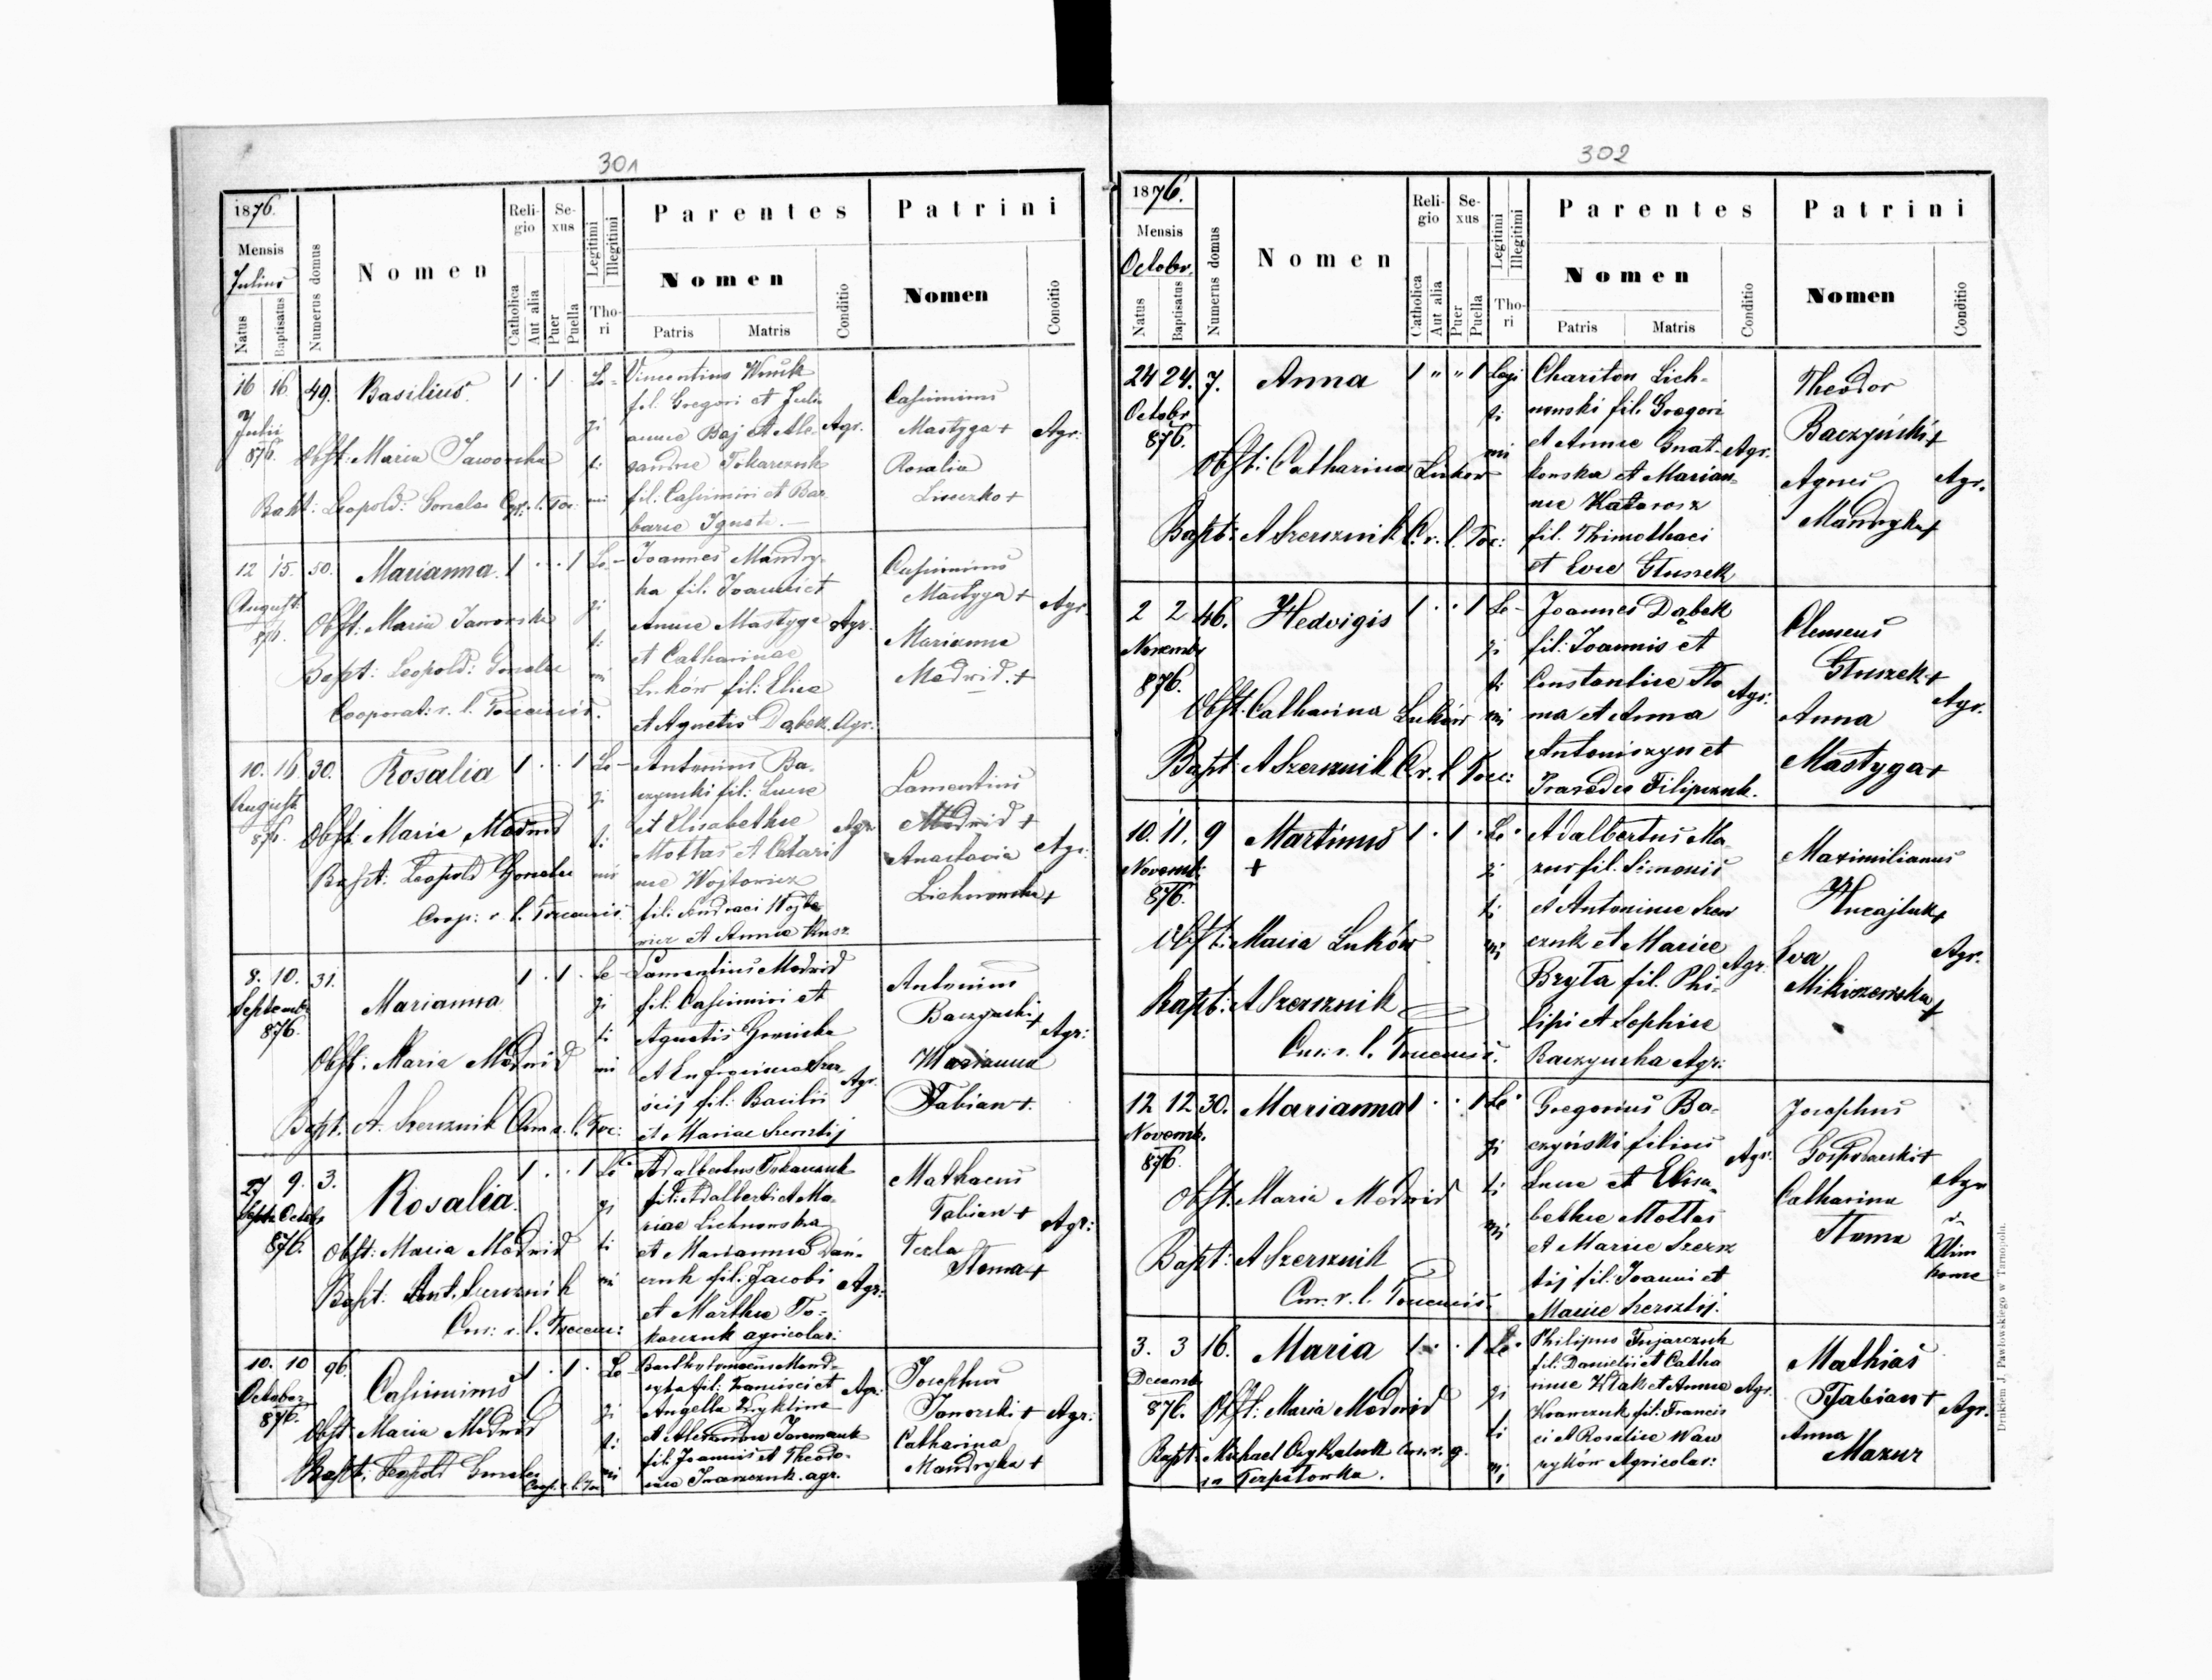 301
1876.
Mensis
Julius
Natus
Baptisatus
Numerus domus
Nomen
Religio
Catholica
Aut alia
Sexus
Puer
Puella
Legitimi
Illegitimi
Thori
Parentes
Nomen
Patris
Matris
Conditio
Patrini
Nomen
Conditio
16 16 49. Basilius 1 · 1 · Le-
Julii
876.
gi
ti
mi
Obst: Maria Jaworska
Bapt: Leopold: Gonalas
Vincentius
fil. Gregori et Julia
annae Baj et Ale- Agr.
xandrae Tokarczuk
fil. Casimiri et Bar
barae
Casimirus
Mastyga +
Rosalia
Agr.
12 15. 50. Marianna. 1 · · 1 Le-
August.
876.
gi
ti
mi
Obst: Maria Jaworska
Bapt: Leopold: Gonalas
Cooperat: r. l.
Joannes Mandry-
ka fil. Joannis et
Annae Mastyga Agr.
et Catharinae
Luków fil: Eliae
et Agnetis Dąbek. Agr:
Casimirus
Mastyga +
Marianna
Medwid. +
Agr.
10. 16. 30. Rosalia 1 · · 1 Le-
August.
876.
gi
ti
mi
Obst. Maria Medwid
Bapt: Leopold Gonalas
Coop: r. l.
Antonius Ba-
czynski fil: Lucae
et Elisabethae Agr
Mottas et Catari
nae Wojtowicz
fil: Andraei Wojto
wicz et Annae
Lamentius
Medwid +
Anastasia
Lichnowska +
Agr:
8. 10. 31. Marianna 1 · 1 · Le-
Septemb.
876.
gi
ti
mi
Obst: Maria Medwid
Bapt. A. Szersznik
Lamentius Medwid
fil. Casimiri et
Agnetis
Agr.
fil: Basilii
et Mariae
Antonius
Baczynski +
Marianna
Fabian +.
Agr:
27 9. 3. Rosalia. 1 · · 1 Le
Septe Octobr
876.
gi
ti
mi
Obst: Maria Medwid
Bapt. Ant. Szersznik
Cur: r. l.
Adalbertus Tokarczuk
fil: Adalberti et Ma-
riae Lichnowska
et Mariannae Dań-
czuk fil. Jacobi Agr:
et Marthae To-
karczuk agricolar:
Mathaeus
Fabian +
Tecla
Stoma +
Agr:
10. 10 96. Casimirus 1 · 1 · Le-
October
876.
gi
ti
mi
Obst: Maria Medwid
Bapt: Leopold Gonalas
Coop. r. l.
Bartholomaeus Mand-
ryka fil: Francisci et Agr.
Angella
et Alexandrae
fil. Joannis et Theodo-
rae Iwanczuk. agr.
Josephus
Janorski + Agr:
Catharina
Mandryka +
302
1876.
Mensis
Octobr.
Natus
Baptisatus
Numerus domus
Nomen
Religio
Catholica
Aut alia
Sexus
Puer
Puella
Legitimi
Illegitimi
Thori
Parentes
Nomen
Patris
Matris
Conditio
Patrini
Nomen
Conditio
24 24. 7. Anna 1 " " 1 Legi
Octobr
876.
ti
mi
Obst: Catharina Lukow
Bapt: A Szersznik C. r. l. Toc:
Chariton Lich-
nowski fil. Gregori
et Annae Gnat- Agr.
kowska et Marian-
nae Katorosz
fil. Thimothaei
et Evae Gluszek
Theodor
Baczyński +
Agnes Agr.
Mandryka +
2 2 46. Hedvigis 1 · · 1 Le-
Novemb
876.
gi
ti
mi
Obst. Catharina Luków
Bapt: A Szersznik C. r. l. Toc:
Joannes Dąbek
fil: Joannis et
Constantiae Sto Agr:
ma et Anna
Antoniszyn et
Praxedes Filipczuk.
Clemens
Gluszek +
Anna
Mastyga +
Agr.
10. 11. 9 Martinus 1 · 1 · Le·
+
Novemb:
876.
gi
ti
mi
Obst: Maria Luków
Bapt: A Szersznik
Cur: r. l.
Adalbertus Ma-
zur fil. Simonis
et Antoninae Szew
czuk et Mariae
Bryta fil. Phi- Agr:
lipi et Sophiae
Baczynska Agr:
Maximilianus
Hucajluk +
Eva
Mikiszewska +
Agr.
12 12 30. Marianna 1 · · 1 Le·
Novemb.
876.
gi
ti
mi
Obst: Maria Medwid
Bapt: A Szersznik
Cur: r. l.
Gregorius Ba-
czyński filius Agr.
Lucae et Elisa-
bethae Mottas
et Mariae Szersz
tij fil: Joanni et
Mariae Szersztij.
Josephus
Gospodarski +
Catharina
Stoma
Agr
3. 3 16. Maria 1 · · 1 Le·
Decemb
876.
gi
ti
mi
Obst: Maria Medwid
Bapt: Michael Cur. r. g.
in Terpiłowka.
Philipus Fujarczuk
fil: Danielis et Catha
rinae Wlak et Annae Agr.
Krawczuk fil: Francis
ci et Rosaliae Waw
ryków Agricolar:
Mathias
Fabian + Agr.
Anna
Mazur
Drukiem J. Pawłowskiego w Tarnopolu.